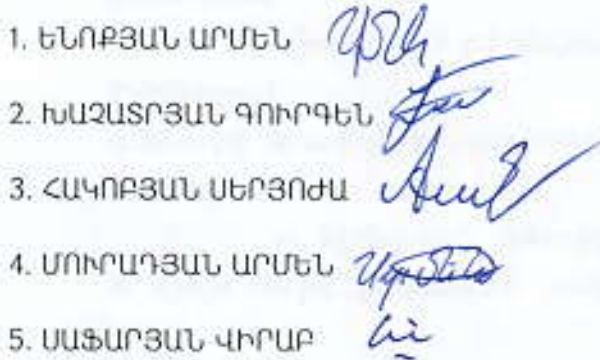 1. ԵՆՈՔՅԱՆ ԱՐՄԵՆ
2. ԽԱՉԱՏՐՅԱՆ ԳՈՒՐԳԵՆ
3. ՀԱԿՈԲՅԱՆ ՍԵՐՅՈԺԱ
4. ՄՈՒՐԱԴՅԱՆ ԱՐՄԵՆ
5. ՍԱՖԱՐՅԱՆ ՎԻՐԱԲ